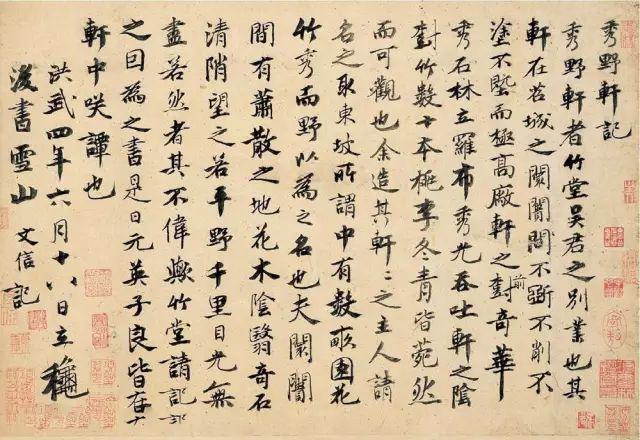 秀野軒記
秀野軒者竹堂吳君之別業也其
軒在苕城之闤闠間不斲不削不
塗不墍而極高敞軒之前對奇華
秀石林立羅布秀光吞吐軒之陰
對竹數十本桃李冬青皆菀然
而可觀也余造其軒軒之主人請
名之取東坡所謂中有數畝園花
竹秀而野以為之名也夫闤闠
間有蕭散之地花木陰翳奇石
清陗望之若平野千里目光無
盡若然者其不偉歟竹堂請記
之因為之書是日元英子良皆在
軒中咲譚也
洪武四年六月十八日立穐
後書雪山 文信記